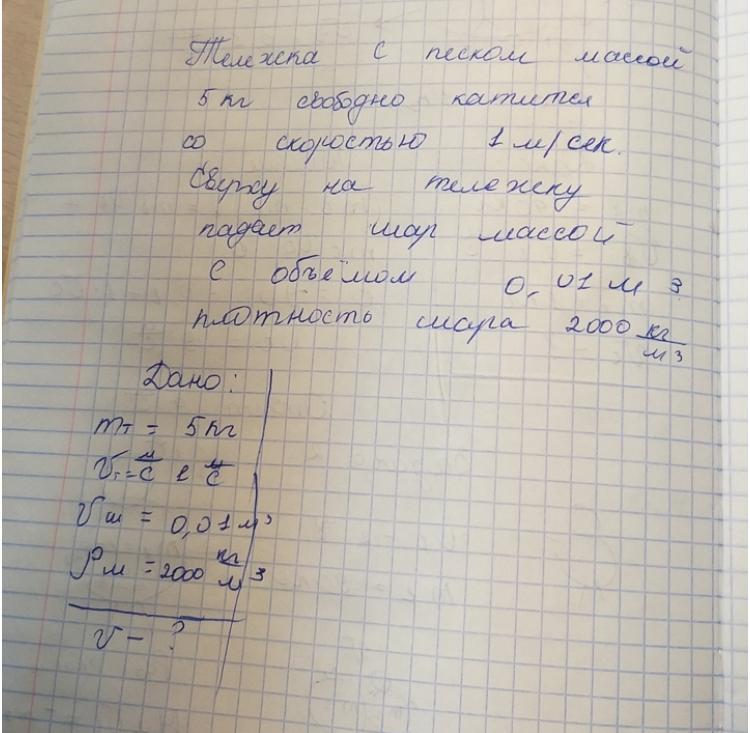 Тележка с песком массой
5 кг свободно катится
со скоростью 1 м/сек.
Сверху на тележку
падает шар массой
с объёмом 0,01 м³
плотность шара 2000 кг/м³
Дано:
mт = 5 кг
Vт = м/с 1 м/с
Vш = 0,01 м³
ρм = 2000 кг/м³
v - ?